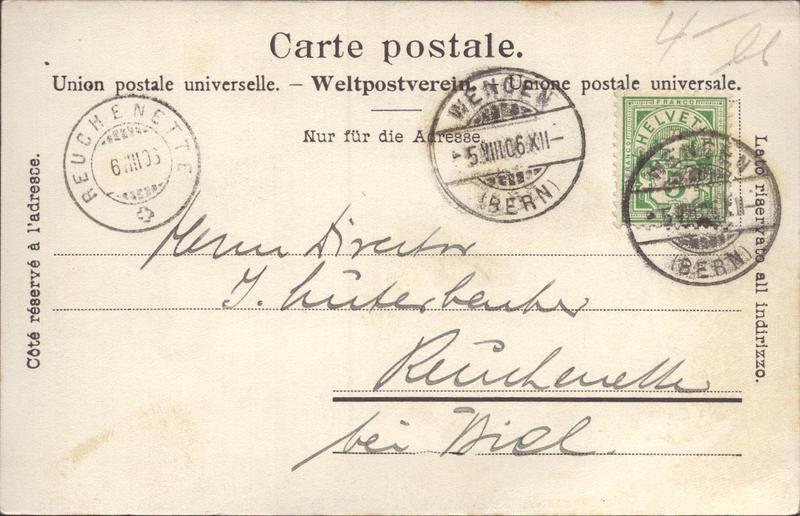 Carte postale.
Union postale universelle. – Weltpostverein. – Unione postale universale.
Nur für die Adresse.
Côté réservé à l'adresse.
Lato riservato all indirizzo.
REUCHENETTE
WENGEN
5.VIII.06.XII–
(BERN)
FRANCO
HELVETIA
FRANCO
5
WENGEN
(BERN)
Herrn Director
J.
Reuchenette
bei Biel.